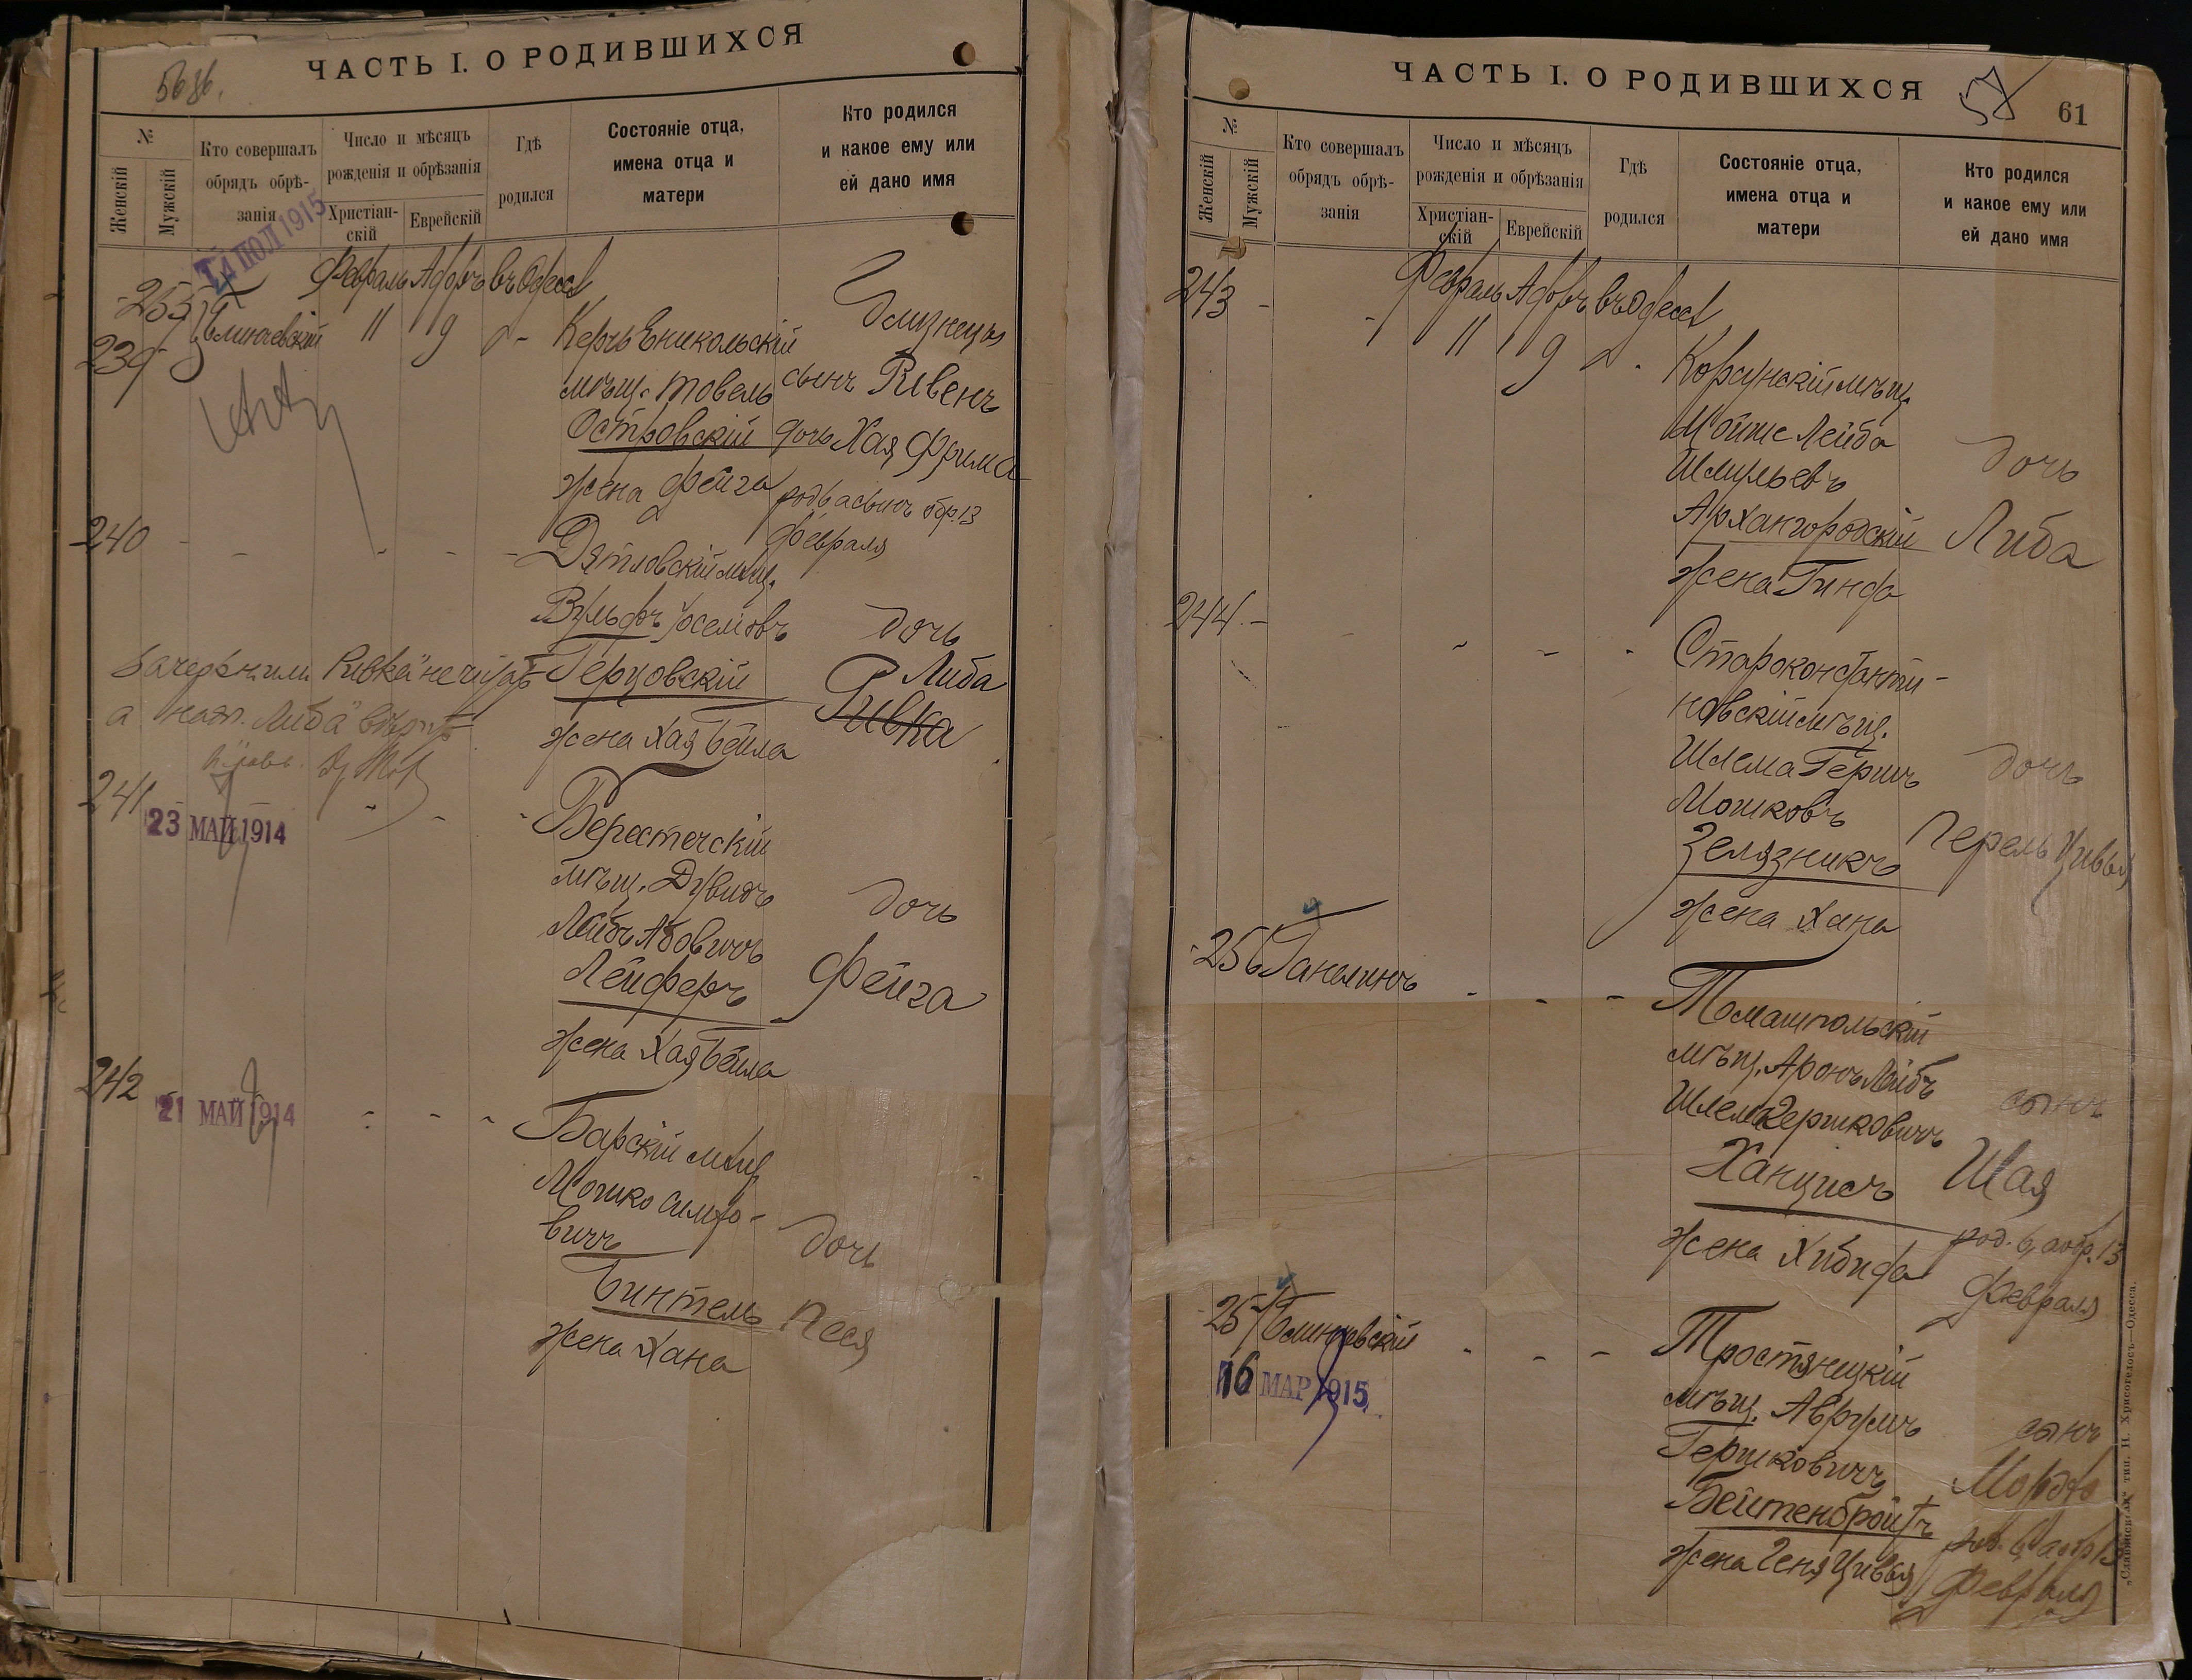 ЧАСТЬ I. О РОДИВШИХСЯ
№
Женскій
Мужскій
Кто совершалъ
обрядъ обрѣ-
занія
Число и мѣсяцъ
рожденія и обрѣзанія
Христіан-
скій
Еврейскій
Гдѣ
родился
Состояніе отца,
имена отца и
матери
Кто родился
и какое ему или
ей дано имя
1915
Февраль Адаръ въ Одессѣ
255
239
11 9
близнецы
Керчь Еникольскій
мѣщ. Товель
Островскій
жена Фейга
сынъ Рувенъ
дочь Хая Фрима
род 6 а сынъ обр. 13
февраля
240
Дятловскій мѣщ.
Вульфъ Іоселіовъ
Герцовскій
жена Хая Бейла
дочь
Либа
Ривка
а надп. "Либа" вѣрить
241
23 МАЙ 1914
Берестечскій
мѣщ. Дувидъ
Лейбъ Абовичъ
Лейферъ
жена Хая Бейла
дочь
Фейга
242
21 МАЙ 1914
Барскій мѣщ.
Мошко Симхо-
вичъ
Бинтель
жена Хана
дочь
Песя
ЧАСТЬ I. О РОДИВШИХСЯ
61
№
Женскій
Мужскій
Кто совершалъ
обрядъ обрѣ-
занія
Число и мѣсяцъ
рожденія и обрѣзанія
Христіан-
скій
Еврейскій
Гдѣ
родился
Состояніе отца,
имена отца и
матери
Кто родился
и какое ему или
ей дано имя
243
Февраль Адаръ въ Одессѣ
11 9
Корсунскій мѣщ.
Мойше Лейба
Шмульевъ
Архангородскій
жена Гинда
дочь
Либа
244
Староконстанти-
новскій мѣщ.
Шлема Гершъ
Мошковъ
Зелязникъ
жена Хана
дочь
Перель Цивья
256 Ганелинъ
Томашпольскій
мѣщ. Аронъ Лейбъ
Шлема Гершковичъ
Ханцисъ
жена Хибида
сынъ
Шая
род. 6, а обр. 13
февраля
257
16 МАР 1915
Тростянецкій
мѣщ. Аврумъ
Гершковичъ
Бейтенбройтъ
жена Геня Цивья
сынъ
Мордко
род. 6 а обр 13
февраля